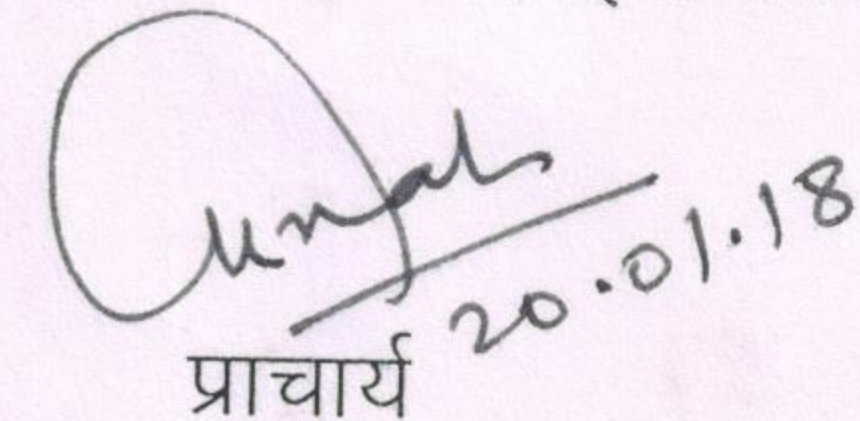 20.01.18
प्राचार्य